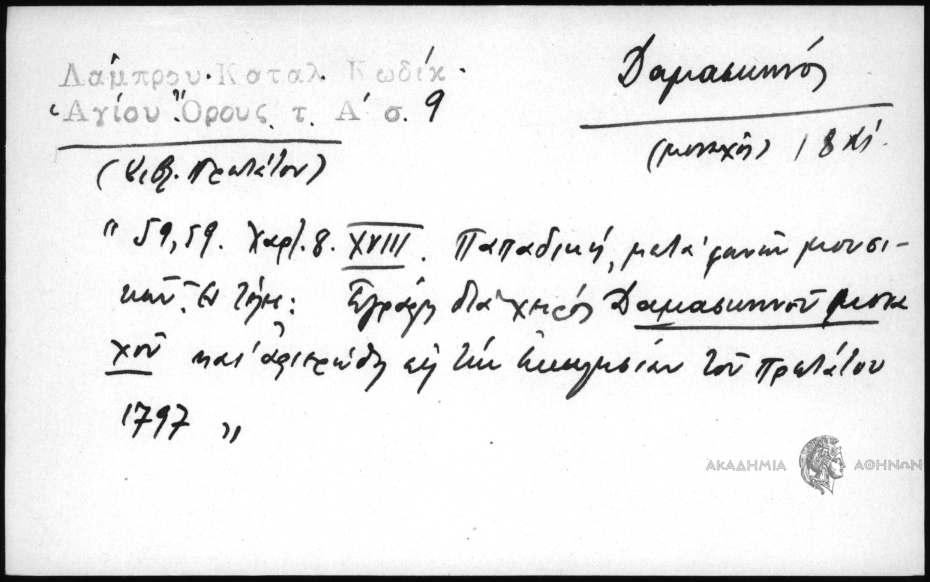 Λάμπρου Καταλ. Κωδίκ.
Ἁγίου Ὄρους τ. Α' σ. 9
Δαμασκηνός
(μοναχός) 18 αἰ.
(Βιβλ. Πρωτάτου)
" 59,59. Χαρτ. 8. XVIII. Παπαδική, μετὰ φωνῶν μουσι-
κῶν. Ἐν τέλει: Ἐγράφη διὰ χειρὸς Δαμασκηνοῦ μονα
χοῦ καὶ ἀφιερώθη εἰς τὴν ἐκκλησίαν τοῦ Πρωτάτου
1797 "
ΑΚΑΔΗΜΙΑ ΑΘΗΝΩΝ